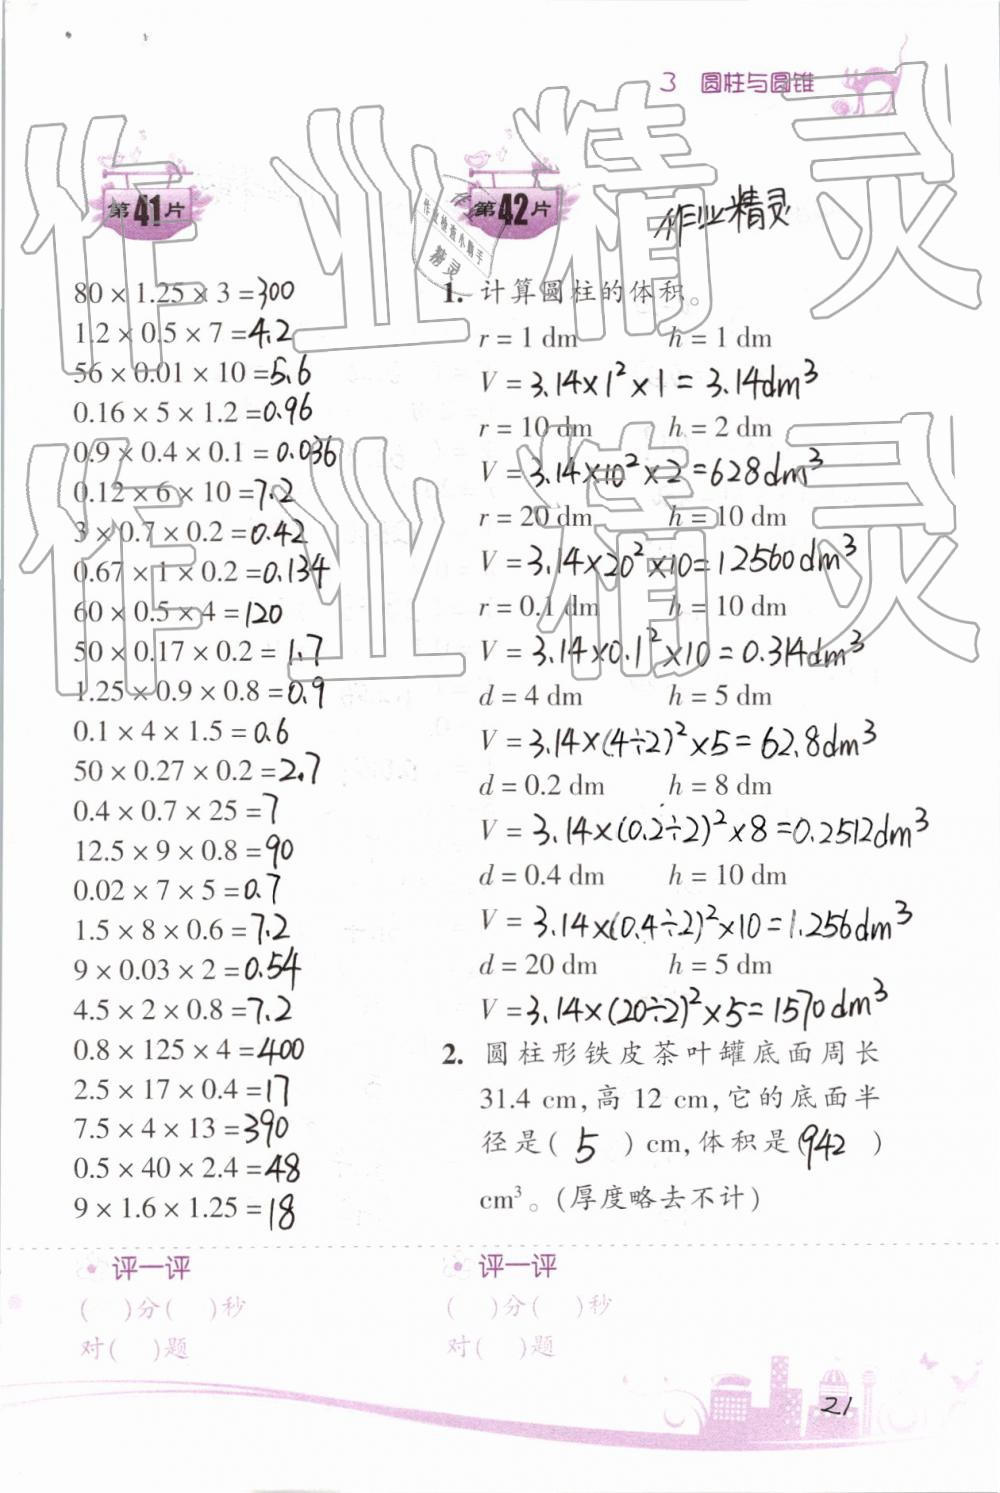 3 圆柱与圆锥
第41片
80 × 1.25 × 3 = 300
1.2 × 0.5 × 7 = 4.2
56 × 0.01 × 10 = 5.6
0.16 × 5 × 1.2 = 0.96
0.9 × 0.4 × 0.1 = 0.036
0.12 × 6 × 10 = 7.2
3 × 0.7 × 0.2 = 0.42
0.67 × 1 × 0.2 = 0.134
60 × 0.5 × 4 = 120
50 × 0.17 × 0.2 = 1.7
1.25 × 0.9 × 0.8 = 0.9
0.1 × 4 × 1.5 = 0.6
50 × 0.27 × 0.2 = 2.7
0.4 × 0.7 × 25 = 7
12.5 × 9 × 0.8 = 90
0.02 × 7 × 5 = 0.7
1.5 × 8 × 0.6 = 7.2
9 × 0.03 × 2 = 0.54
4.5 × 2 × 0.8 = 7.2
0.8 × 125 × 4 = 400
2.5 × 17 × 0.4 = 17
7.5 × 4 × 13 = 390
0.5 × 40 × 2.4 = 48
9 × 1.6 × 1.25 = 18
评一评
( )分( )秒
对( )题
第42片
作业精灵
作业检查小助手
精灵
1. 计算圆柱的体积。
r = 1 dm h = 1 dm
V = 3.14×1²×1 = 3.14dm³
r = 10 dm h = 2 dm
V = 3.14×10²×2 = 628dm³
r = 20 dm h = 10 dm
V = 3.14×20²×10 = 12560dm³
r = 0.1 dm h = 10 dm
V = 3.14×0.1²×10 = 0.314dm³
d = 4 dm h = 5 dm
V = 3.14×(4÷2)²×5 = 62.8dm³
d = 0.2 dm h = 8 dm
V = 3.14×(0.2÷2)²×8 = 0.2512dm³
d = 0.4 dm h = 10 dm
V = 3.14×(0.4÷2)²×10 = 1.256dm³
d = 20 dm h = 5 dm
V = 3.14×(20÷2)²×5 = 1570dm³
2. 圆柱形铁皮茶叶罐底面周长
31.4 cm,高 12 cm,它的底面半
径是( 5 ) cm,体积是(942 )
cm³。(厚度略去不计)
评一评
( )分( )秒
对( )题
21
作业精灵
作业精灵